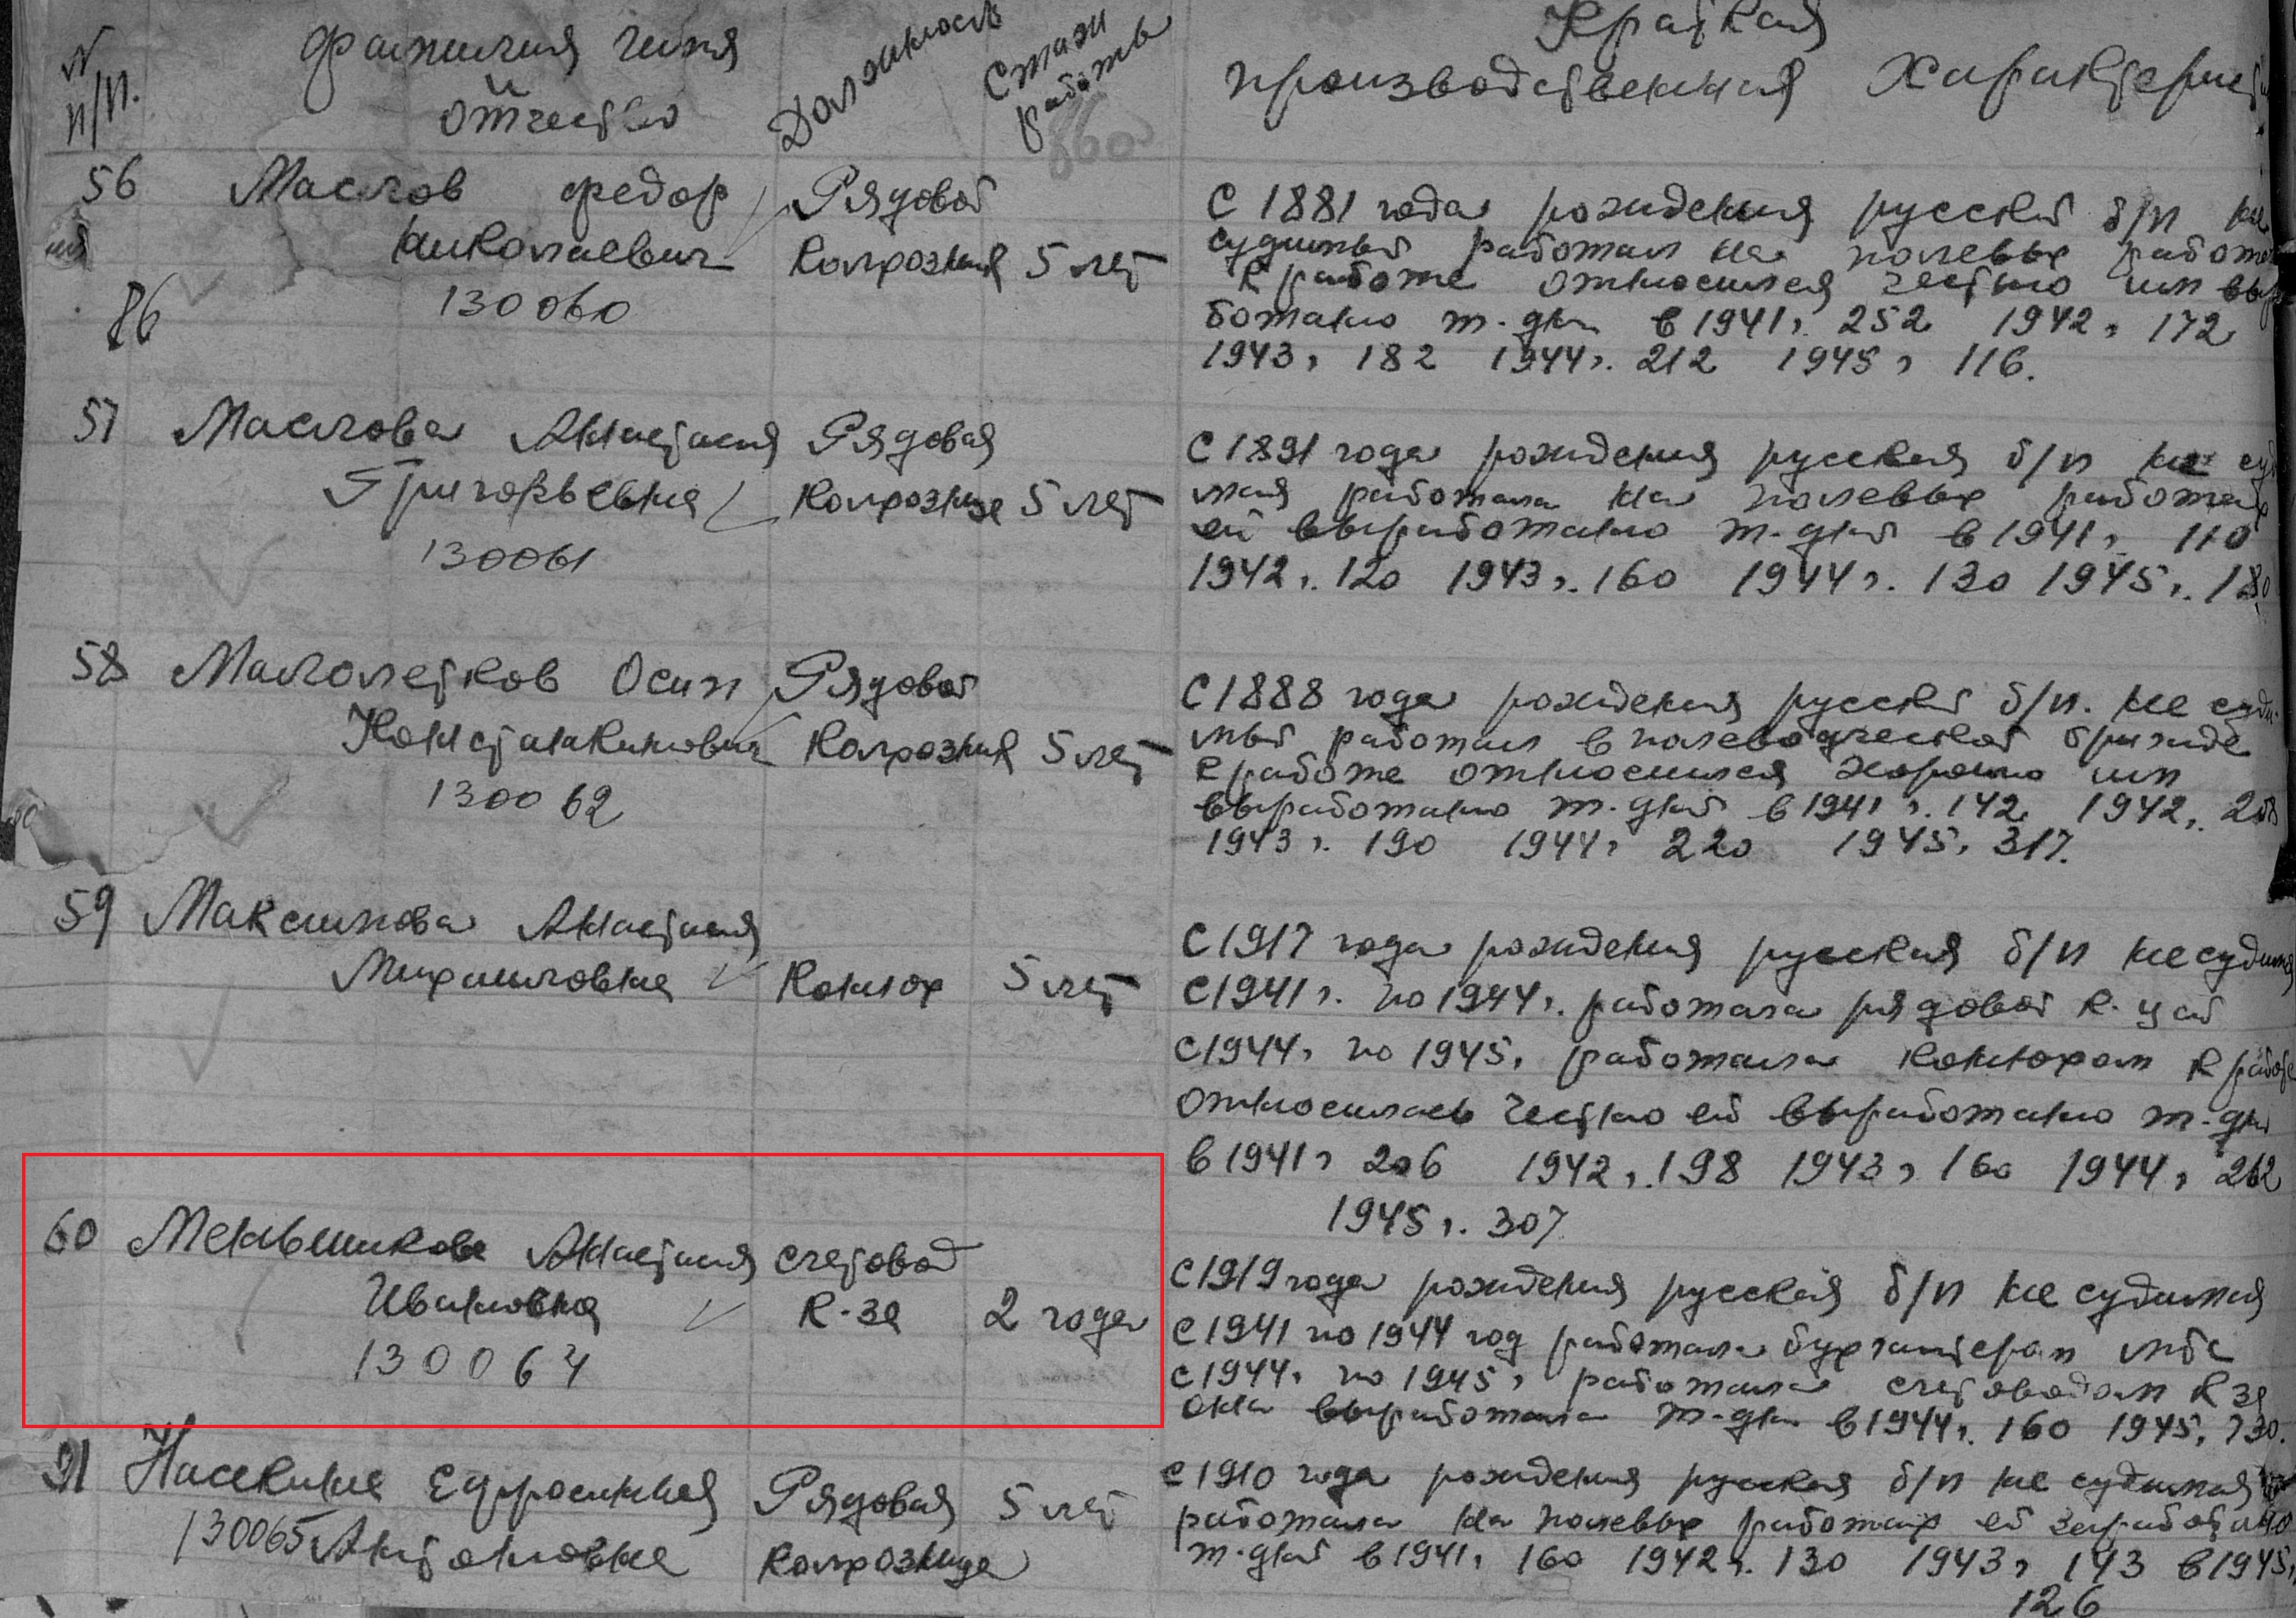 N п/п.
Фамилия имя
и
отчество
Должность
Стаж
работы
860
Краткая
производственная характерист
56 Маслов Федор
Николаевич
130060
86
Рядовой
Колхозник 5 лет
С 1881 года рождения русский б/п не
судимый работал на полевых работах
К работе относился честно им выра
ботано т-дни в 1941г. 252 1942г. 172
1943г. 182 1944г. 212 1945г. 116.
57 Маслова Анастасия
Григорьевна
130061
Рядовая
Колхозница 5 лет
С 1891 года рождения русская б/п не суди
мая работала на полевых работах
ей выработано т-дней в 1941г. 110
1942г. 120 1943г. 160 1944г. 130 1945г. 180
58 Малолетков Осип
Константинович
130062
Рядовой
Колхозник 5 лет
С 1888 года рождения русский б/п. не суди
мый работал в полеводческой бригаде
К работе относился хорошо им
выработано т-дней в 1941г. 142 1942г.
1943г. 190 1944г. 220 1945г. 317.
59 Максимова Анастасия
Михайловна
Конюх 5 лет
С 1917 года рождения русская б/п не судимая
С 1941г. по 1944г. работала рядовой к-цей
С 1944г. по 1945г. работала конюхом К работе
относилась честно ей выработано т-дни
в 1941г. 206 1942г. 198 1943г. 160 1944г. 262
1945г. 307
60 Меньшикова Анастасия
Ивановна
130064
счетовод
к-за 2 года
С 1919 года рождения русская б/п не судимая
С 1941 по 1944 год работала бухгалтером
С 1944г. по 1945г. работала счетоводом к-за
Она выработала т-дни в 1944г. 160 1945г. 730.
91 Наскина Ефросиния
130065 Антоновна
Рядовая 5 лет
Колхозница
С 1910 года рождения русская б/п не судимая
работала на полевых работах ей заработано
т-дней в 1941г. 160 1942г. 130 1943г. 143 в 1945г.
126